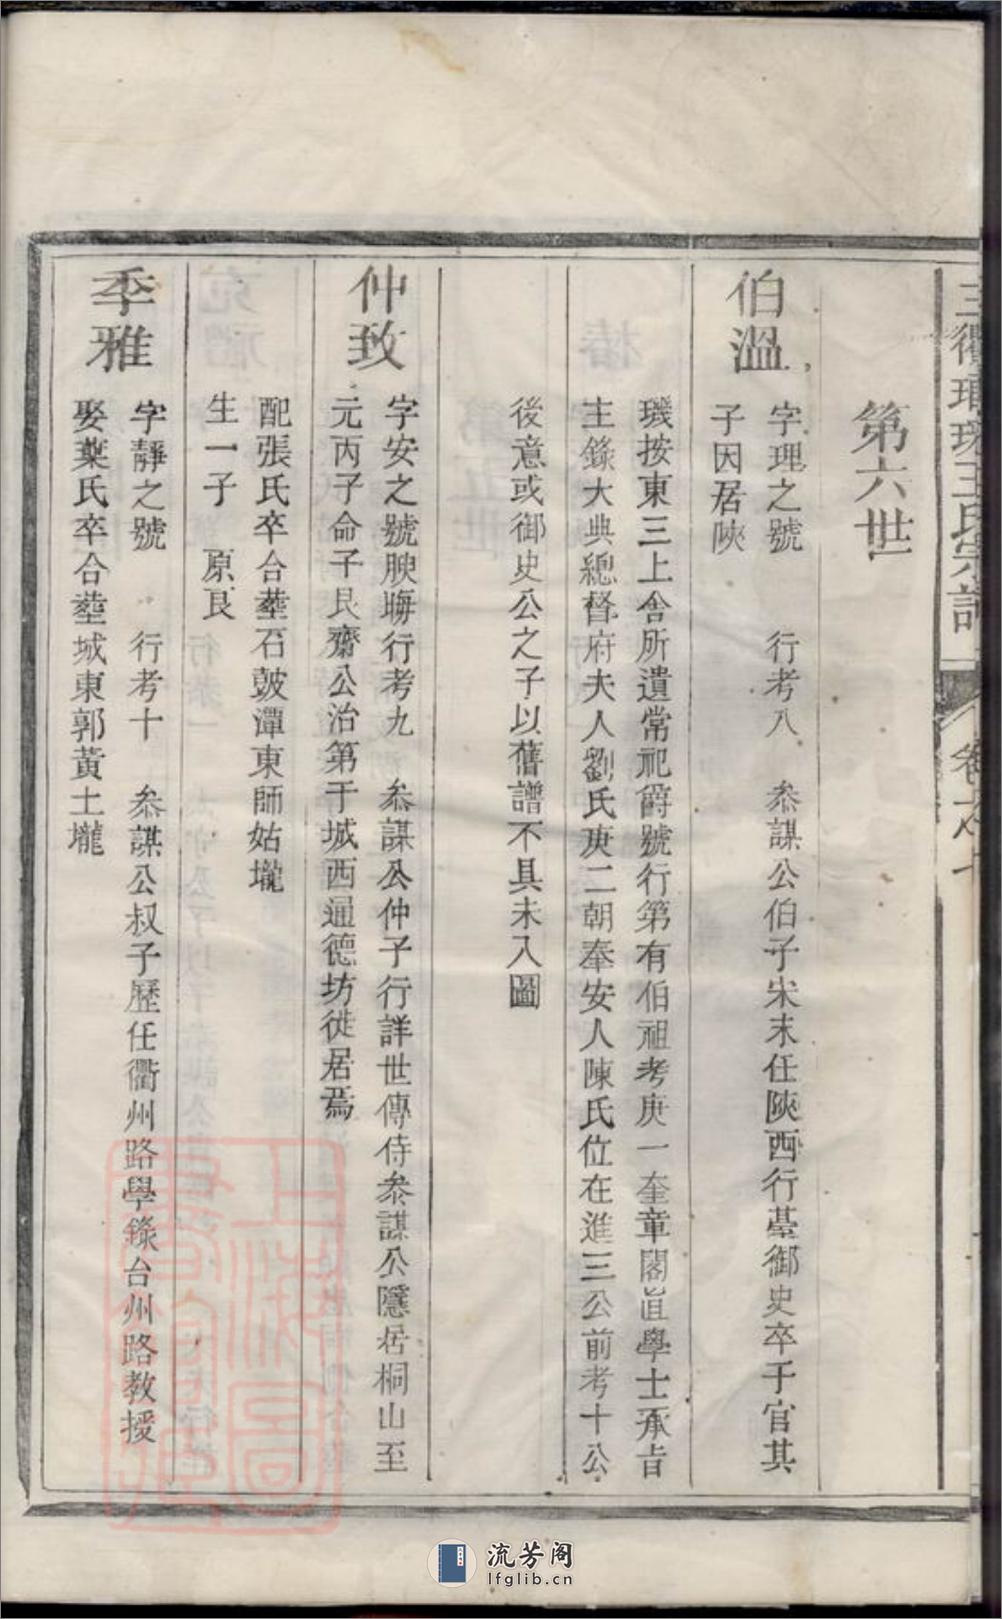 三衢琅琊王氏宗譜 卷之十
第六世
伯溫
字理之號 行考八 叅謀公伯子宋末任陝西行臺御史卒于官其
子因居陝
璣按東三上舍所遺常祀爵號行第有伯祖考庚一奎章閣直學士承旨
主錄大典總督府夫人劉氏庚二朝奉安人陳氏位在進三公前考十公
後意或御史公之子以舊譜不具未入圖
仲致
字安之號腴晦行考九 叅謀公仲子行詳世傳侍叅謀公隱居桐山至
元丙子命子艮齋公治第于城西通德坊徙居焉
配張氏卒合塟石皷潭東師姑壠
生一子 原艮
季雅
字靜之號 行考十 叅謀公叔子歷任衢州路學錄台州路教授
娶葉氏卒合塟城東郭黃土壠
上海圖書館藏
流芳阁
lfglib.cn